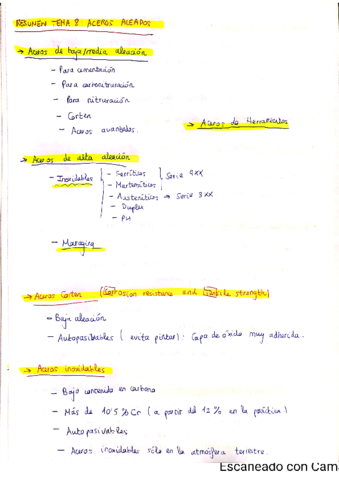 RESUMEN TEMA 8 ACEROS ALEADOS
→ Aceros de baja/media aleación
- Para cementación
- Para carbonitruración
- Para nitruración
- Corten
- Aceros avanzados.
→ Aceros de Herramientas
→ Aceros de alta aleación
- Inoxidables
- Ferríticos
- Martensíticos
Serie 4XX
- Austeníticos → Serie 3XX
- Duplex
- PH
- Maraging
→ Aceros Corten (Corrosion resistance and tensile strength)
- Baja aleación
- Autopasivables (evita pintar). Capa de óxido muy adherida.
→ Aceros inoxidables
- Bajo contenido en carbono
- Más de 10'5 % Cr (a partir del 12% en la práctica)
- Autopasivables.
- Aceros inoxidables sólo en la atmósfera terrestre.
Escaneado con Cam